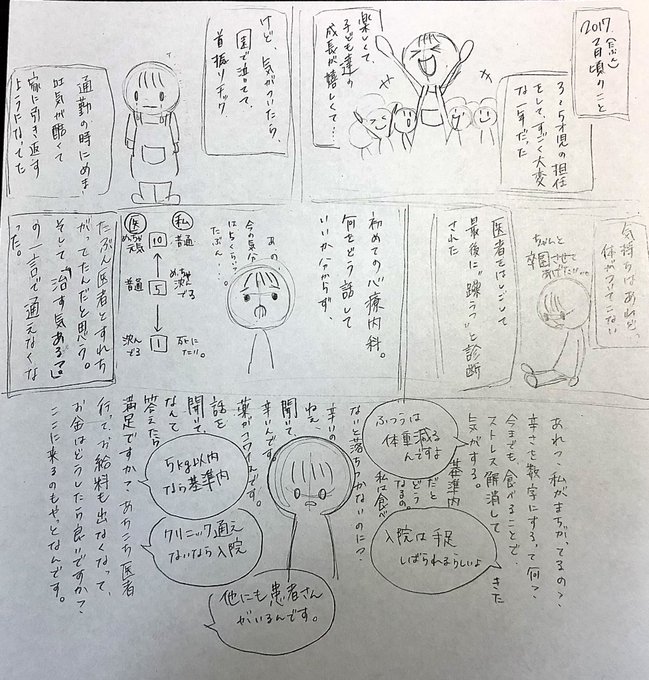 2017(たぶん)
2月頃のこと
3〜5才児の担任
をして、すごく大変
な一年だった
楽しくて、
子ども達の
成長が嬉しくて…
けど、気がついたら、
園で泣いてて、
首振りチック、
通勤の時にめま
吐気が酷くて
家に引き返す
ようになってた
気持ちはあれど、
体がついてこない
ちゃんと
卒園させて
あげたい…
医者をはしごして
最後に"躁うつ"と診断
された
初めての心療内科。
何をどう話して
いいか分からず、
あの…
今の気分
は5くらい…?
たぶん…
私
普通
めちゃ
沈んでる
死に
たい。
10
5
1
医
めちゃ
元気
普通
沈ん
でる
たぶん医者とすれち
がってたんだと思う。
そして「治す気ある?」
の一言で通えなくな
った。
あれっ 私がまちがってるの?
辛さを数字にするって何?
今までも食べることで、
ストレス解消して きた
気がする。
ふつうは
体重減る
んですよ
基準内
だと
どう
なるの。
私は食べ
ないと落ちつかないのに?
入院は手足
しばられるらしいよ
辛いの
ねぇ、
聞いて、
辛いんです。
薬がコワいんです。
話を
聞いて、
なんて
答えたら
満足ですか?あちこち医者
行って、お給料も出なくなって、
お金はどうしたら良いですか?
ここに来るのもやっとなんです。
5kg以内
なら基準内
クリニック通え
ないなら入院
他にも患者さん
がいるんです。